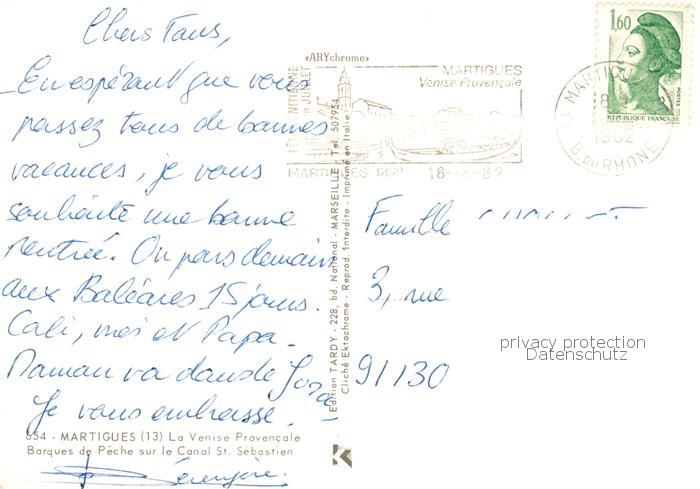 Chers Tous,
En espérant que vous
passez tous de bonnes
vacances, je vous
souhaite une bonne
rentrée. On pars demain
aux Baléares 15 jours.
Cali, moi et Papa.
Maman va dans le Jura
Je vous embrasse.
Bérengère.
654 - MARTIGUES (13) La Venise Provençale
Barques de Pêche sur le Canal St. Sébastien
«ARYchrome»
Edition TARDY - 228, bd. National - MARSEILLE - Tel. 507954
Cliché Ektachrome - Reprod. Interdite - Imprimé en Italie
MARTIGUES
Venise Provençale
JUILLET
MARTIGUES ppal 18-8-82
MARTIGUES
18
1982
B. DU RHONE
1,60
POSTES
REPUBLIQUE FRANÇAISE
Famille
3, rue
91130
privacy protection
Datenschutz
K